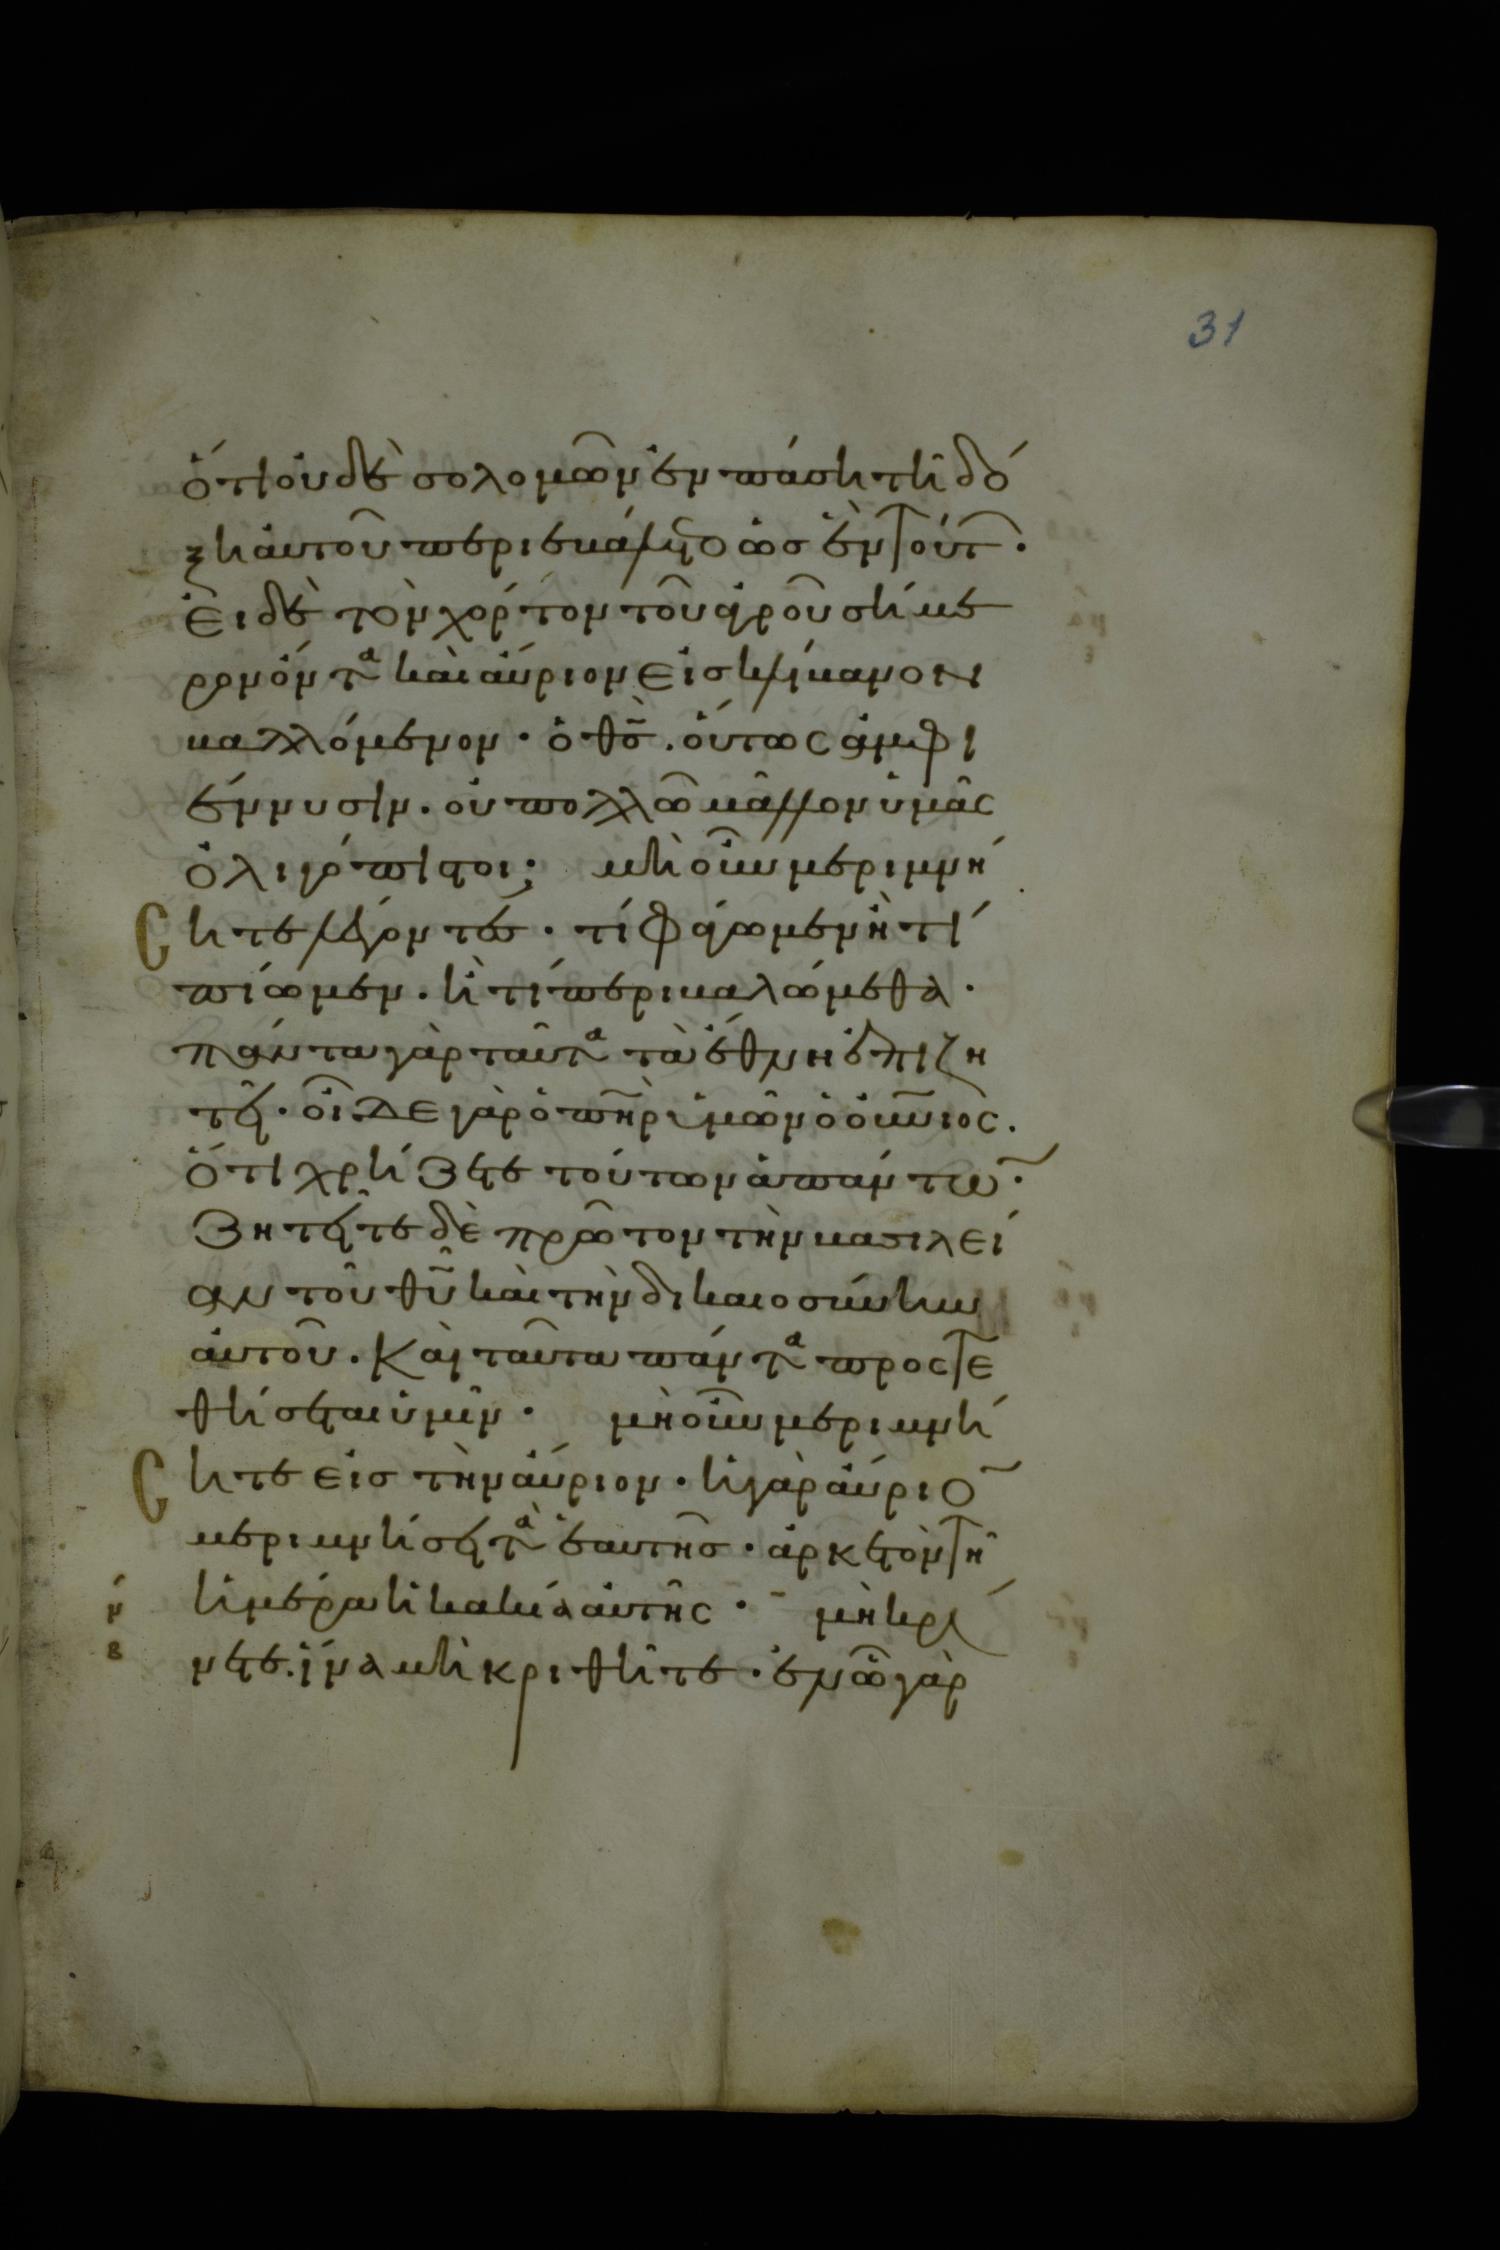 31
ὅτι οὐδὲ σολομῶν ἐν πάση τῆ δό
ξη αὐτοῦ περιεβάλετο ὡς ἓν τούτ·
εἰ δὲ τὸν χόρτον τοῦ ἀγροῦ σήμε
ρον ὄντα καὶ αὔριον εἰς κλίβανον
βαλλόμενον · ὁ θς̅ . οὕτως ἀμφι
έννυσιν . οὐ πολλῶ μᾶλλον ὑμᾶς
ὀλιγόπιστοι ; μὴ οὖν μεριμνή
σητε λέγοντες · τί φάγωμεν ἢ τί
πίωμεν . ἢ τί περιβαλώμεθα ·
πάντα γὰρ ταῦτα τὰ ἔθνη ἐπιζη
τεῖ · οἶδε γὰρ ὁ πη̅ρ ὑμῶν ὁ οὐν̅ιος .
ὅτι χρήζετε τούτων ἁπάντω ·
ζητεῖτε δὲ πρῶτον τὴν βασιλεί
αν τοῦ θυ̅ καὶ τὴν δικαιοσύνην
αὐτοῦ . καὶ ταῦτα πάντα προστε
θήσεται ὑμῖν · μὴ οὖν μεριμνή
σητε εἰς τὴν αὔριον · ἡ γὰρ αὔριο
μεριμνήσει τὰ ἑαυτῆς · ἀρκετὸν τῆ
ἡμέρα ἡ κακία αὐτῆς · μὴ κρί
νετε . ἵνα μὴ κριθῆτε · ἐν ὧ γὰρ
ν
β